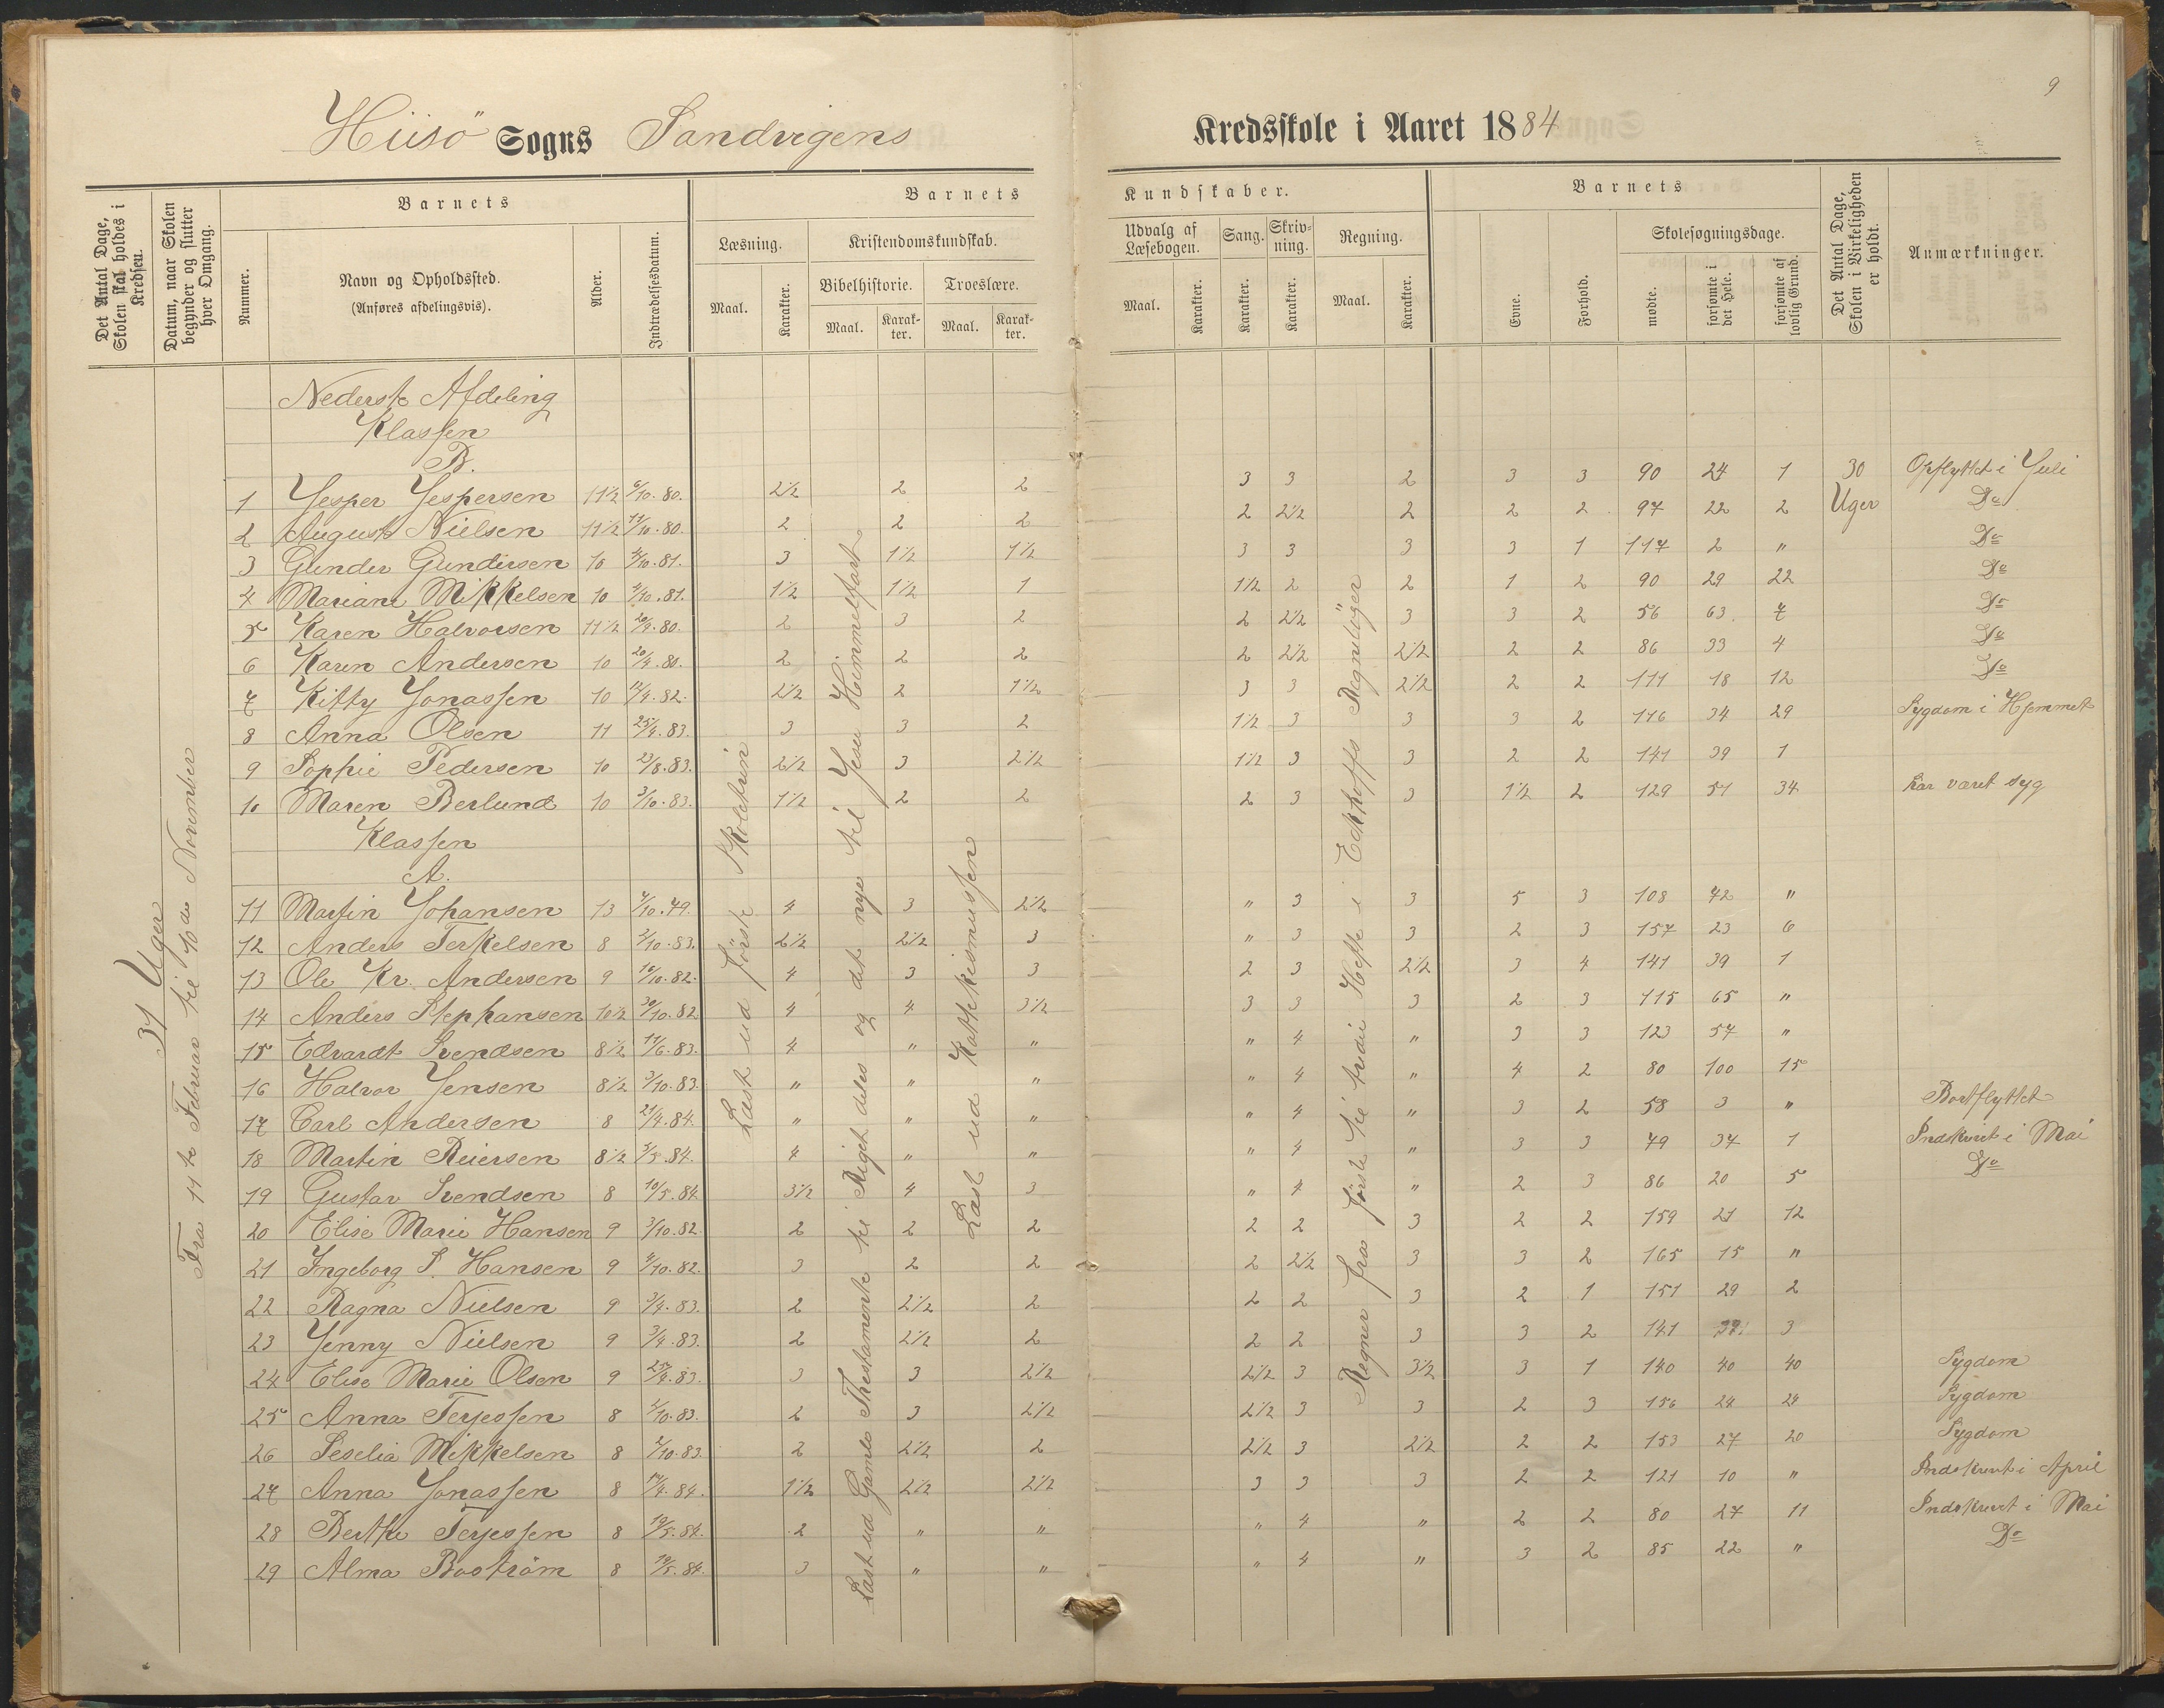 9
Hiisö Sogns Sandvigens Kredsskole i Aaret 1884
Det Antal Dage, Skolen skal holdes i Kredsen.
Datum, naar Skolen begynder og slutter hver Omgang.
Barnets
Nummer.
Navn og Opholdssted.
(Anføres afdelingsvis).
Alder.
Indtrædelsesdatum.
Barnets Kundskaber.
Læsning.
Maal. Karakter.
Kristendomskundskab.
Bibelhistorie. Troeslære.
Maal. Karakter. Maal. Karakter.
Udvalg af Læsebogen.
Maal. Karakter.
Sang.
Karakter.
Skrivning.
Karakter.
Regning.
Maal. Karakter.
Barnets
Evne. Forhold.
Skolesøgningsdage.
mødte. forsømte i det Hele. forsømte af lovlig Grund.
Det Antal Dage, Skolen i Virkeligheden er holdt.
Anmærkninger.
31 Uger
Fra 11te Februar til 10de November
Læst ud første Skoletrin
Læst ud Gamle Thestamente til Riget deles og det nye til Jesu Himmelfart
Læst ud Kathekismussen
Regner fra første til tredie Hefte i Eckhoffs Regneböger
Nederste Afdeling
Klassen
B.
1 Jesper Jespersen 11 1/2 6/10.80. 2 1/2 2 2 3 3 2 3 3 90 24 1 30 Opflyttet i Juli
2 August Nielsen 11 1/2 11/10.80. 2 2 2 2 2 1/2 2 2 2 97 22 2 Uger Do
3 Gunder Gundersen 10 4/10.81. 3 1 1/2 1 1/2 3 3 3 3 1 117 2 " Do
4 Mariane Mikkelsen 10 4/10.81. 1 1/2 1 1/2 1 1 1/2 2 2 1 2 90 29 22 Do
5 Karen Halvorsen 11 1/2 20/9.80. 2 3 2 2 2 1/2 3 3 2 56 63 7 Do
6 Karen Andersen 10 20/4.80. 2 2 2 2 2 1/2 2 1/2 2 2 86 33 4 Do
7 Kitty Jonassen 10 17/4.82. 2 1/2 2 1 1/2 3 3 2 1/2 2 2 111 18 12 Do
8 Anna Olsen 11 25/4.83. 3 3 2 1 1/2 3 3 3 2 146 34 29 Sygdom i Hjemmet
9 Sophie Pedersen 10 23/8.83. 2 1/2 3 2 1/2 1 1/2 3 3 2 2 141 39 1
10 Maren Berlund 10 3/10.83. 1 1/2 2 2 2 3 3 1 1/2 2 129 51 34 har været syg
Klassen
A.
11 Martin Johansen 13 7/10.79. 4 3 2 1/2 " 3 3 5 3 108 72 "
12 Anders Terkelsen 8 3/10.83. 2 1/2 2 1/2 3 " 3 3 2 3 157 23 6
13 Ole Kr. Andersen 9 16/10.82. 4 3 3 2 3 2 1/2 3 4 141 39 1
14 Anders Stephansen 10 1/2 30/10.82 4 4 3 1/2 3 3 3 2 3 115 65 "
15 Edvardt Svendsen 8 1/2 11/6.83. 4 " " " 4 " 3 3 123 57 "
16 Halvor Jensen 8 1/2 3/10.83. " " " " 4 " 4 2 80 100 15
17 Carl Andersen 8 21/4.84. " " " " 4 " 3 2 58 3 " Bortflyttet
18 Martin Reiersen 8 1/2 5/5.84. 4 " " " 4 " 3 3 79 34 1 Indskrevet i Mai
19 Gustav Svendsen 8 10/5.84. 3 1/2 4 3 " 4 " 2 3 86 20 5 Do
20 Elise Marie Hansen 9 3/10.82. 2 2 2 2 2 3 2 2 159 21 12
21 Ingeborg S. Hansen 9 4/10.82. 3 2 2 2 2 1/2 3 3 2 165 15 "
22 Ragna Nielsen 9 3/4.83. 2 2 1/2 2 2 2 3 2 1 151 29 2
23 Jenny Nielsen 9 3/4.83. 2 2 1/2 2 2 2 3 3 2 141 39 3
24 Elise Marie Olsen 9 25/4.83. 3 3 2 1/2 2 1/2 3 3 1/2 3 1 140 40 40 Sygdom
25 Anna Terjessen 8 5/10.83. 2 3 2 1/2 2 1/2 3 3 2 3 156 24 24 Sygdom
26 Seselia Mikkelsen 8 2/10.83. 2 2 1/2 2 2 1/2 3 2 1/2 2 2 153 27 20 Sygdom
27 Anna Jonassen 8 17/4.84. 1 1/2 2 1/2 2 1/2 3 3 3 2 2 121 10 " Indskrevet i April
28 Berthe Terjessen 8 19/5.84. 2 " " " 4 " 2 2 80 27 11 Indskrevet i Mai
29 Alma Boström 8 19/5.84. 3 " " " 4 " 3 2 85 22 " Do